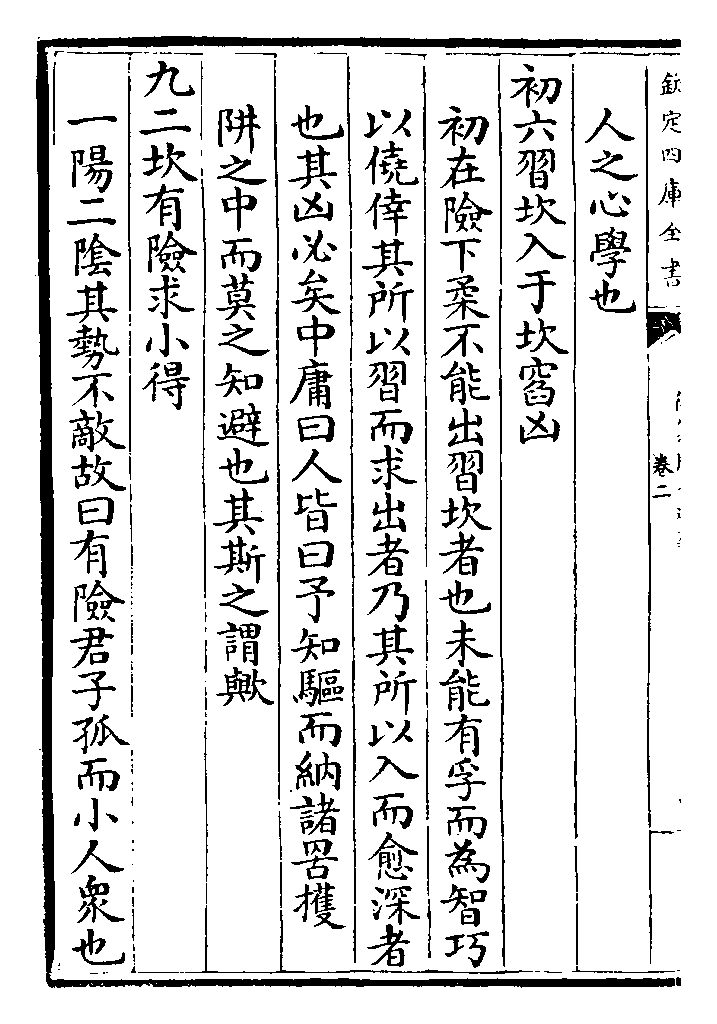 欽定四庫全書
卷二
人之心學也
初六習坎入于坎窞凶
初在險下柔不能出習坎者也未能有孚而為智巧
以僥倖其所以習而求出者乃其所以入而愈深者
也其凶必矣中庸曰人皆曰予知驅而納諸罟擭
阱之中而莫之知避也其斯之謂歟
九二坎有險求小得
一陽二陰其勢不敵故曰有險君子孤而小人衆也